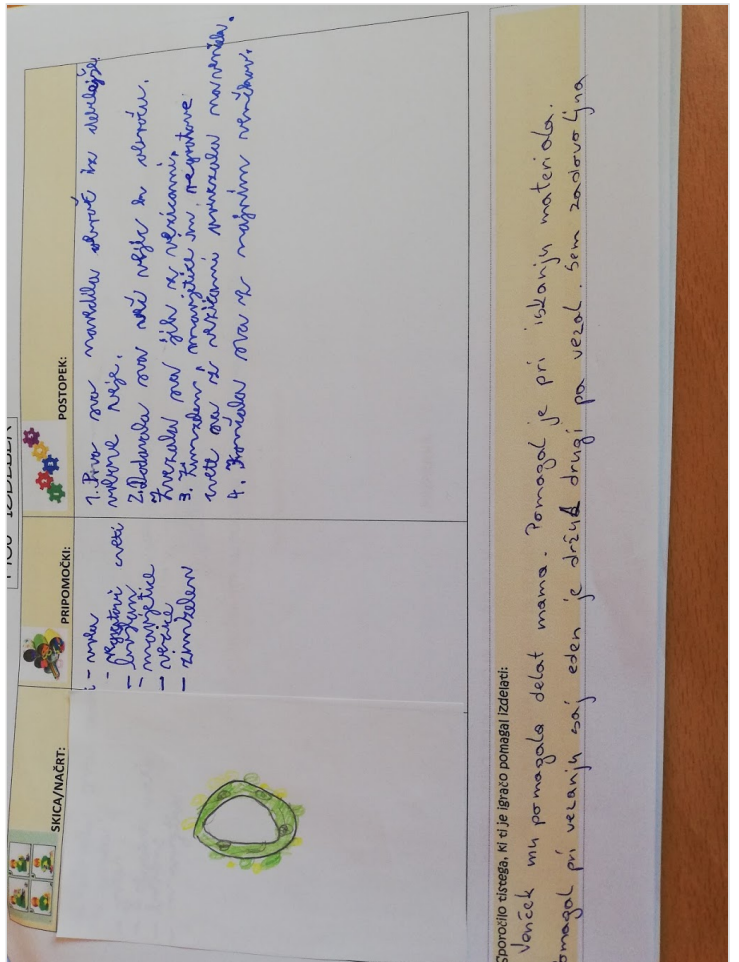 MOJ IZDELEK
SKICA/NAČRT:
PRIPOMOČKI:
POSTOPEK:
- vrba
- regratovi cveti
- marjetice
- zimzelen
1. Prvo sva naredila obroč iz debelejše
vrbove veje.
2. Dodavala sva več vejic in obroču.
Zvezala sva jih z vezicami.
3. Zimzelen, marjetice in regratove
cvete sva z vezicami
4. Končala sva z majnim venčkom.
Sporočilo tistega, ki ti je igračo pomagal izdelati:
Venček mu pomagala delat mama. Pomagal je pri iskanju materiala.
omagal pri vezanju saj eden je držal drugi pa vezal. Sem zadovoljna